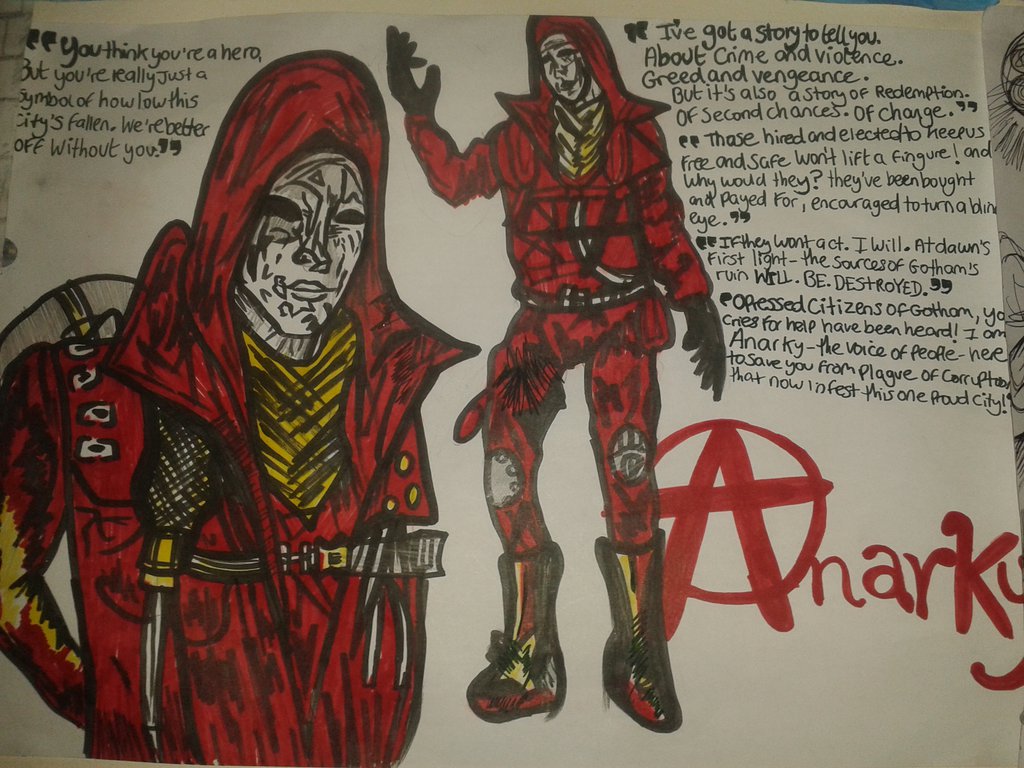 "You think you're a hero,
But you're really Just a
Symbol of how low this
City's fallen. We're better
off without you."
"I've got a story to tell you.
About Crime and violence.
Greed and vengeance.
But it's also a story of Redemption.
Of second chances. Of change."
"Those hired and elected to keep us
free and safe won't lift a fingure! and
why would they? they've been bought
and Payed For, encouraged to turn a blin
eye."
"If they wont act. I will. At dawn's
First light - the sources of Gotham's
ruin WILL. BE. DESTROYED."
"Opressed Citizens of Gotham, yo
Cries for help have been heard! I am
Anarky - the voice of People - here
to save you from Plague of Corruption
that now infest this one Proud City!
Anarky